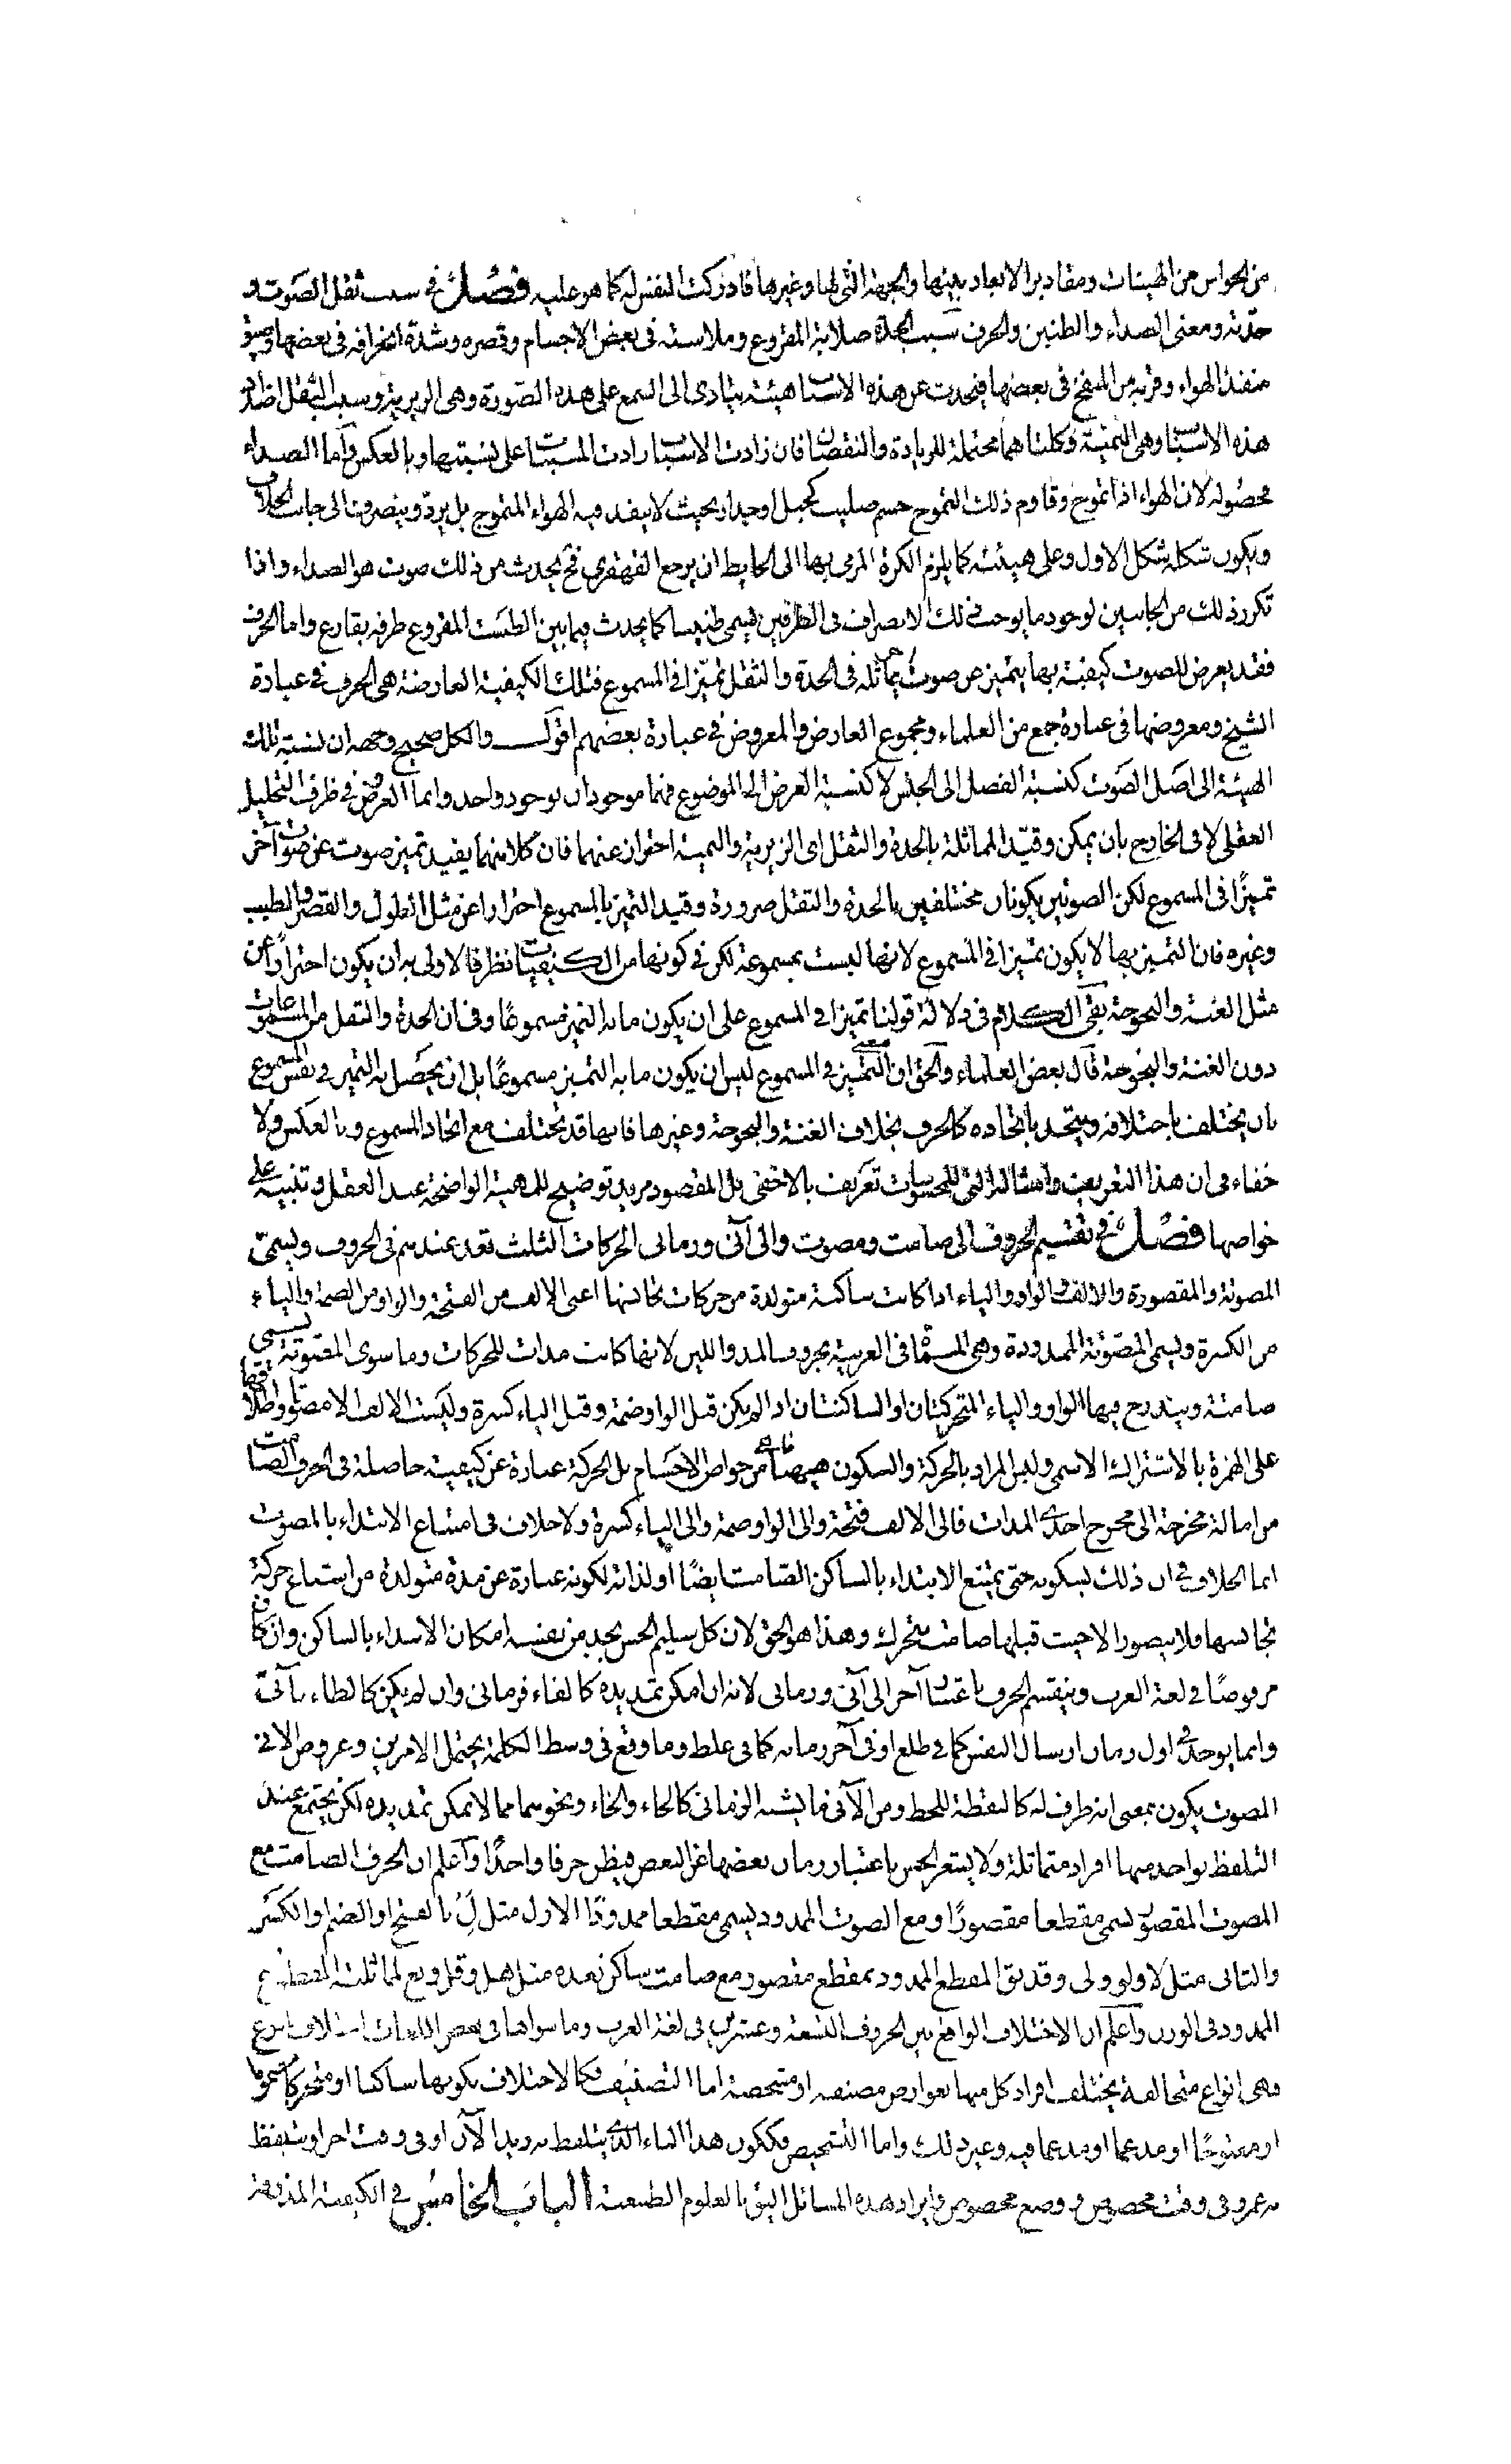 من الحواس من الهيئات ومقادير الابعاد بينها والجهة التى لها وغيرها فادركت النفس له كما هو عليه فصل في سبب ثقل الصوت و
حدته ومعنى الصداء والطنين والحرف سبب الحدة صلابة المقروع وملاسته فى بعض الاجسام وقصره وشدة انخراقه فى بعضها وضيق
منفذ الهواء وقربه من المنفخ فى بعضها فيحدث عن هذه الاسباب هيئة يتادى الى السمع على هذه الصورة وهى الزيرية وسبب الثقل اضداد
هذه الاسباب وهى البمية وكلتاهما محتملة للزيادة والنقصان فان زادت الاسباب زادت المسببات على نسبتها وبالعكس واما الصداء
فحصوله لان الهواء اذا تموج وقاوم ذلك التموج جسم صليب كجبل او جدار بحيث لا ينفذ فيه الهواء المتموج بل يرد وينصرف الى جانب الخلاف
ويكون شكله شكل الاول وعلى هيئته كما يلزم الكرة المرمى بها الى الحايط ان يرجع القهقرى فح يحدث من ذلك صوت هو الصداء واذا
تكرر ذلك من الجانبين لوجود ما يوجب ذلك الانصراف فى الطرفين فيسمى طنينا كما يحدث فيما بين الطست المقروع طرفه بقارع واما الحرف
فقد يعرض للصوت كيفية بها يتميز عن صوت يماثله فى الحدة والثقل تميزا فى المسموع فتلك الكيفية العارضة هى الحرف في عبارة
الشيخ ومعروضها فى عبارة جمع من العلماء ومجموع العارض والمعروض في عبارة بعضهم اقول والكل صحيح وجهه ان نسبة تلك
الهيئة الى اصل الصوت كنسبة الفصل الى الجنس لا كنسبة العرض الى الموضوع فهما موجودان بوجود واحد وانما العروض في ظرف التحليل
العقلى لا فى الخارج بان يمكن وقيد المماثلة بالحدة والثقل اى الزيرية والبمية احتراز عنهما فان كلا منهما يفيد تميز صوت عن صوت آخر
تميزًا فى المسموع لكن الصوتين يكونان مختلفين بالحدة والثقل ضرورة وقيد التميز بالمسموع احترازا عن مثل الطول والقصر والطيب
وغيره فان التميز بها لا يكون تميزا فى المسموع لانها ليست بمسموعة لكن في كونها من الكيفيات نظر فالاولى به ان يكون احترازًا عن
مثل الغنة والبحوحة بقى الكلام فى دلالة قولنا تميزا فى المسموع على ان يكون ما به التميز مسموعًا وفى ان الحدة والثقل من المسموعات
دون الغنة والبحوحة قال بعض العلماء والحق ان معنى التميز في المسموع ليس ان يكون ما به التميز مسموعًا بل ان يحصل به التميز فى نفس المسموع
بان يختلف باختلافه ويتحد باتحاده كالحرف بخلاف الغنة والبحوحة وغيرها فانها قد تختلف مع اتحاد المسموع وبالعكس ولا
خفاء فى ان هذا التعريف وامثاله التى للمحسوسات تعريف بالاخفى بل المقصود مزيد توضيح للمهية الواضحة عند العقل وتنبيه على
خواصها فصل في تقسيم الحروف الى صامت ومصوت والى آنى وزمانى الحركات الثلث تعد عندهم فى الحروف ويسمى
المصوتة والمقصورة والالف والواو والياء اذا كانت ساكنة متولدة من حركات تجانسها اعنى الالف من الفتحة والواو من الضمة والياء
من الكسرة ويسمى المصوتة الممدودة وهى المسماة فى العربية بحروف المد واللين لانها كانت مدات للحركات وما سوى المصوتة يسمى
صامتة ويندرج فيها الواو والياء المتحركتان او الساكنتان اذا لم يكن قبل الواو ضمة وقبل الياء كسرة وليست الالف الا مصوتا واطلاقها
على الهمزة بالاشتراك الاسمى وليس المراد بالحركة والسكون ههنا ما هى من خواص الاجسام بل الحركة عبارة عن كيفية حاصلة فى الحرف الصامت
من امالة مخرجه الى مخرج احدى المدات فالى الالف فتحة والى الواو ضمة والى الياء كسرة ولا خلاف فى امتناع الابتداء بالمصوت
انما الخلاف في ان ذلك لسكونه حتى يمتنع الابتداء بالساكن الصامت ايضًا او لذاته لكونه عبارة عن مدة متولدة من اشباع حركة
تجانسها فلا يتصور الا حيث قبلها صامت متحرك وهذا هو الحق لان كل سليم الحس يجد من نفسه امكان الابتداء بالساكن وان كان
مرفوضًا في لغة العرب وينقسم الحرف باعتبار آخر الى آنى وزمانى لانه ان امكن تمديده كالفاء فزمانى وان لم يكن كالطاء فآنى
وانما يوجد في اول زمان ارسال النفس كما في طلع او فى آخر زمانه كما فى غلط وما وقع فى وسط الكلمة يحتمل الامرين وعروض الآنى
المصوت يكون بمعنى انه طرف له كالنقطة للخط ومن الآنى ما يشبه الزمانى كالحاء والخاء ونحوهما مما لا يمكن تمديده لكن يجتمع عند
التلفظ بواحد منها افراد متماثلة ولا يشعر الحس باعتبار زمان بعضها عن البعض فيظن حرفا واحدًا واعلم ان الحرف الصامت مع
المصوت المقصور يسمى مقطعا مقصورًا ومع الصوت الممدود يسمى مقطعا ممدودًا الاول مثل ل بالفتح او الضم او الكسر
والثانى مثل لا ولو ولى وقد يق المقطع الممدود بمقطع مقصور مع صامت ساكن بعده مثل هل وقل وبع لمماثلته المقطع
الممدود فى الوزن واعلم ان الاختلاف الواقع بين الحروف التسعة وعشرين فى لغة العرب وما سواها فى بعض اللغات اختلاف انواع
وهى انواع متخالفة يختلف افراد كل منها بعوارض مصنفه او مشخصة اما التصنيف فكالاختلاف بكونها ساكنا او متحركا مضموما
او مفتوحًا او مدغما او مدغما فيه وغير ذلك واما التشخيص فككون هذا الباء الذى يتلفظ به زيد الآن او فى وقت اخر او يتلفظ
به عمرو فى وقت مخصوص و وضع مخصوص وايراد هذه المسائل اليق بالعلوم الطبيعية الباب الخامس في الكيفية المذوقة